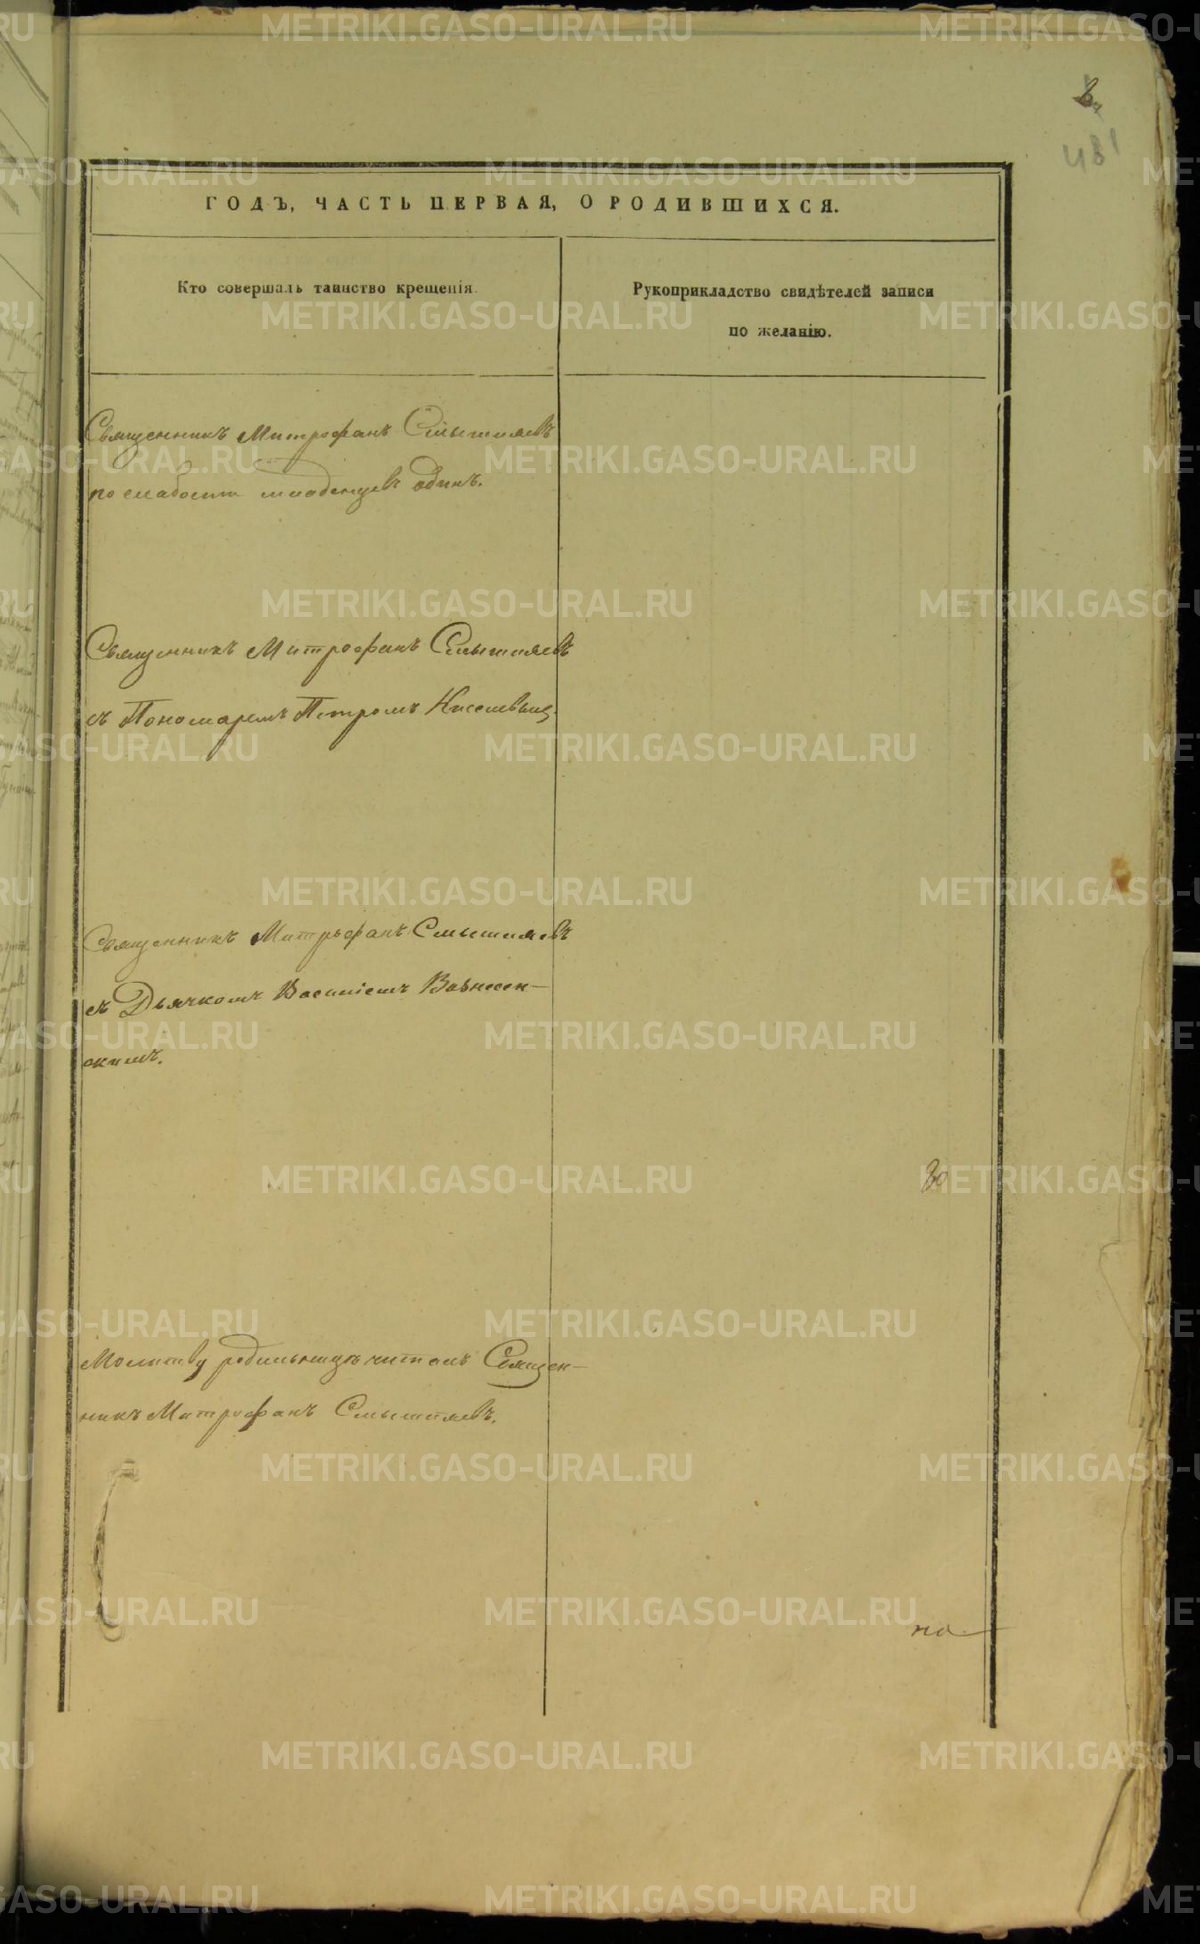 481
ГОДЪ, ЧАСТЬ ПЕРВАЯ, О РОДИВШИХСЯ.
Кто совершалъ таинство крещенія.
Рукоприкладство свидѣтелей записи
по желанію.
Священникъ Митрофанъ Смышляевъ
по слабости младенцевъ одинъ.
Священникъ Митрофанъ Смышляевъ
съ Пономаремъ Петромъ Киселевым
Священникъ Митрофанъ Смышляевъ
съ Дьячкомъ Василіемъ Вознесен-
скимъ.
Молитву родильницѣ читалъ Священ-
никъ Митрофанъ Смышляевъ.
по
METRIKI.GASO-URAL.RU